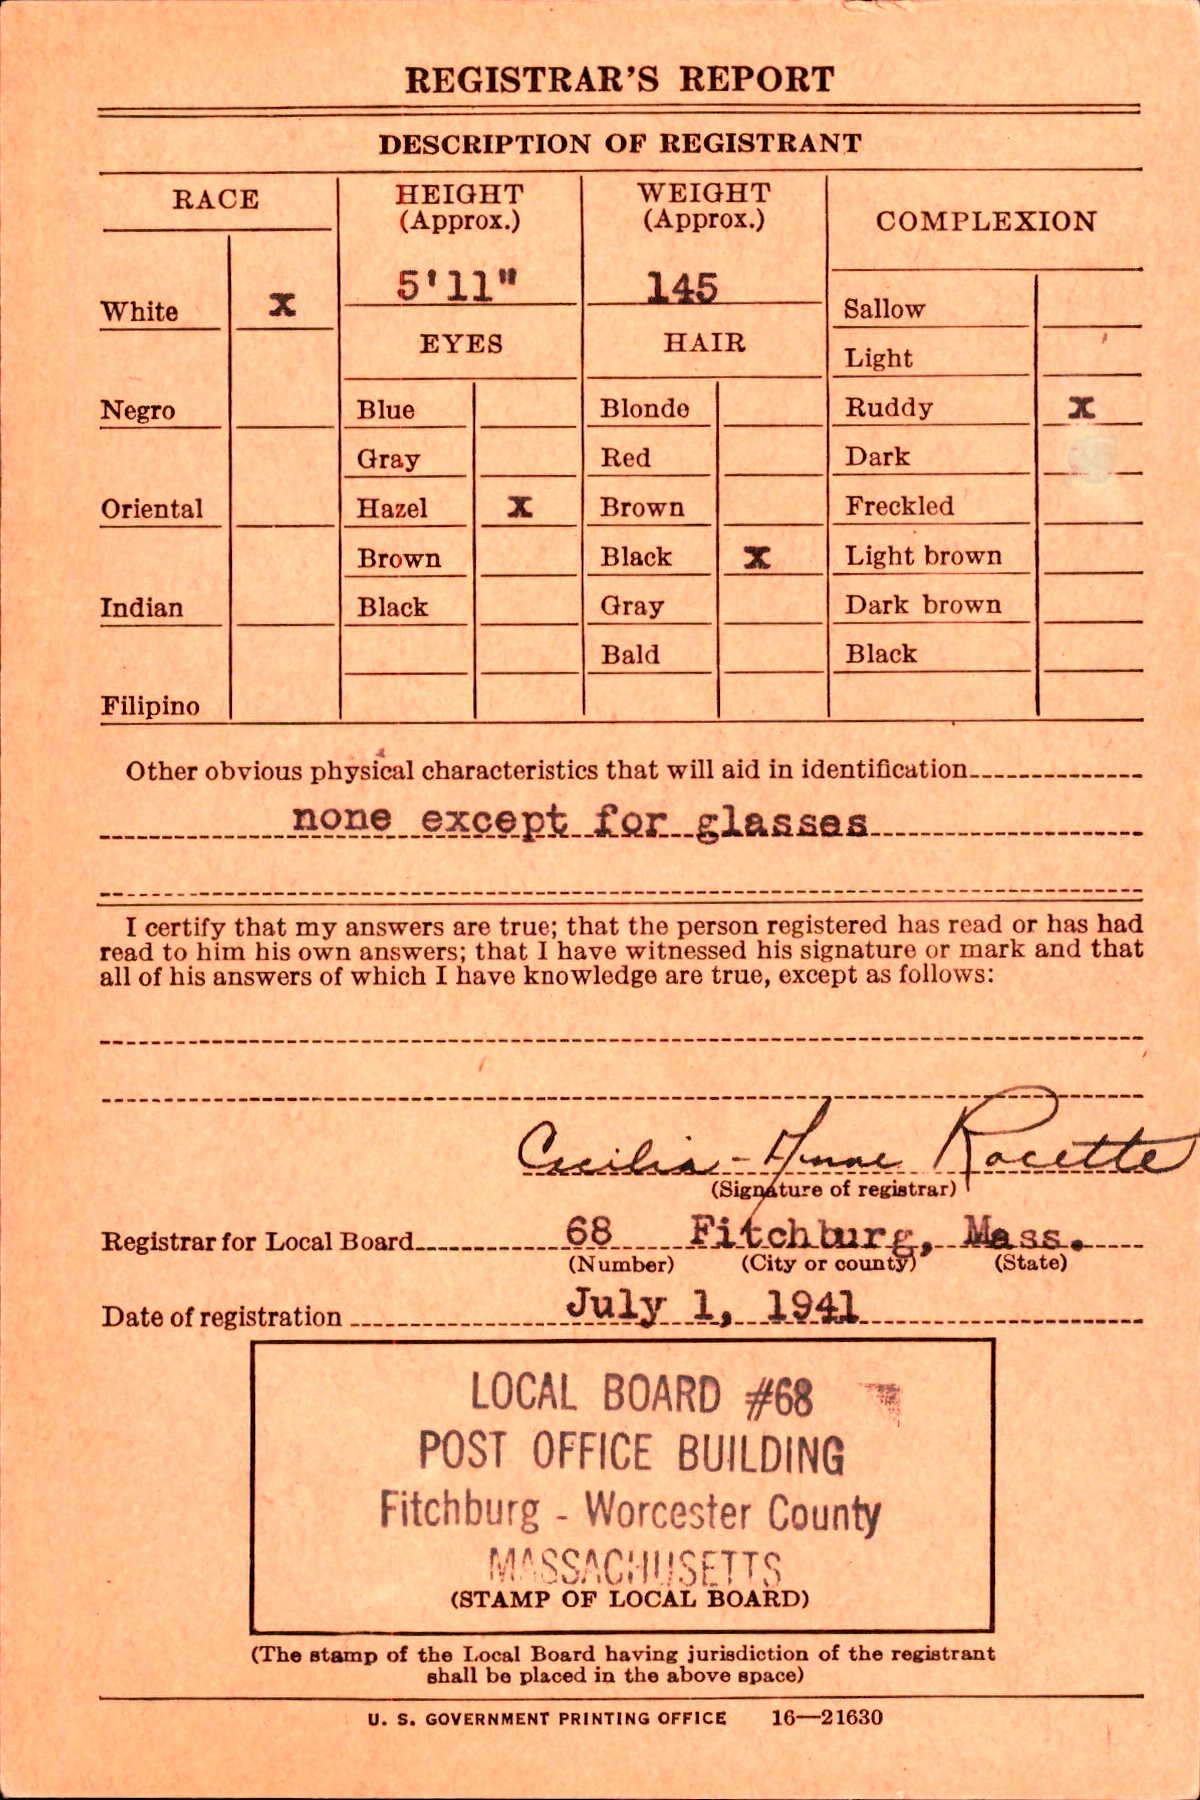 REGISTRAR'S REPORT
DESCRIPTION OF REGISTRANT
RACE
HEIGHT
(Approx.)
WEIGHT
(Approx.)
COMPLEXION
5'11"
145
White x
Sallow
EYES
HAIR
Light
Negro
Blue
Blonde
Ruddy x
Gray
Red
Dark
Oriental
Hazel x
Brown
Freckled
Brown
Black x
Light brown
Indian
Black
Gray
Dark brown
Bald
Black
Filipino
Other obvious physical characteristics that will aid in identification
none except for glasses
I certify that my answers are true; that the person registered has read or has had
read to him his own answers; that I have witnessed his signature or mark and that
all of his answers of which I have knowledge are true, except as follows:
Cecilia-Anne Racette
(Signature of registrar)
Registrar for Local Board 68 Fitchburg, Mass.
(Number) (City or county) (State)
Date of registration July 1, 1941
LOCAL BOARD #68
POST OFFICE BUILDING
Fitchburg - Worcester County
MASSACHUSETTS
(STAMP OF LOCAL BOARD)
(The stamp of the Local Board having jurisdiction of the registrant
shall be placed in the above space)
U. S. GOVERNMENT PRINTING OFFICE 16—21630